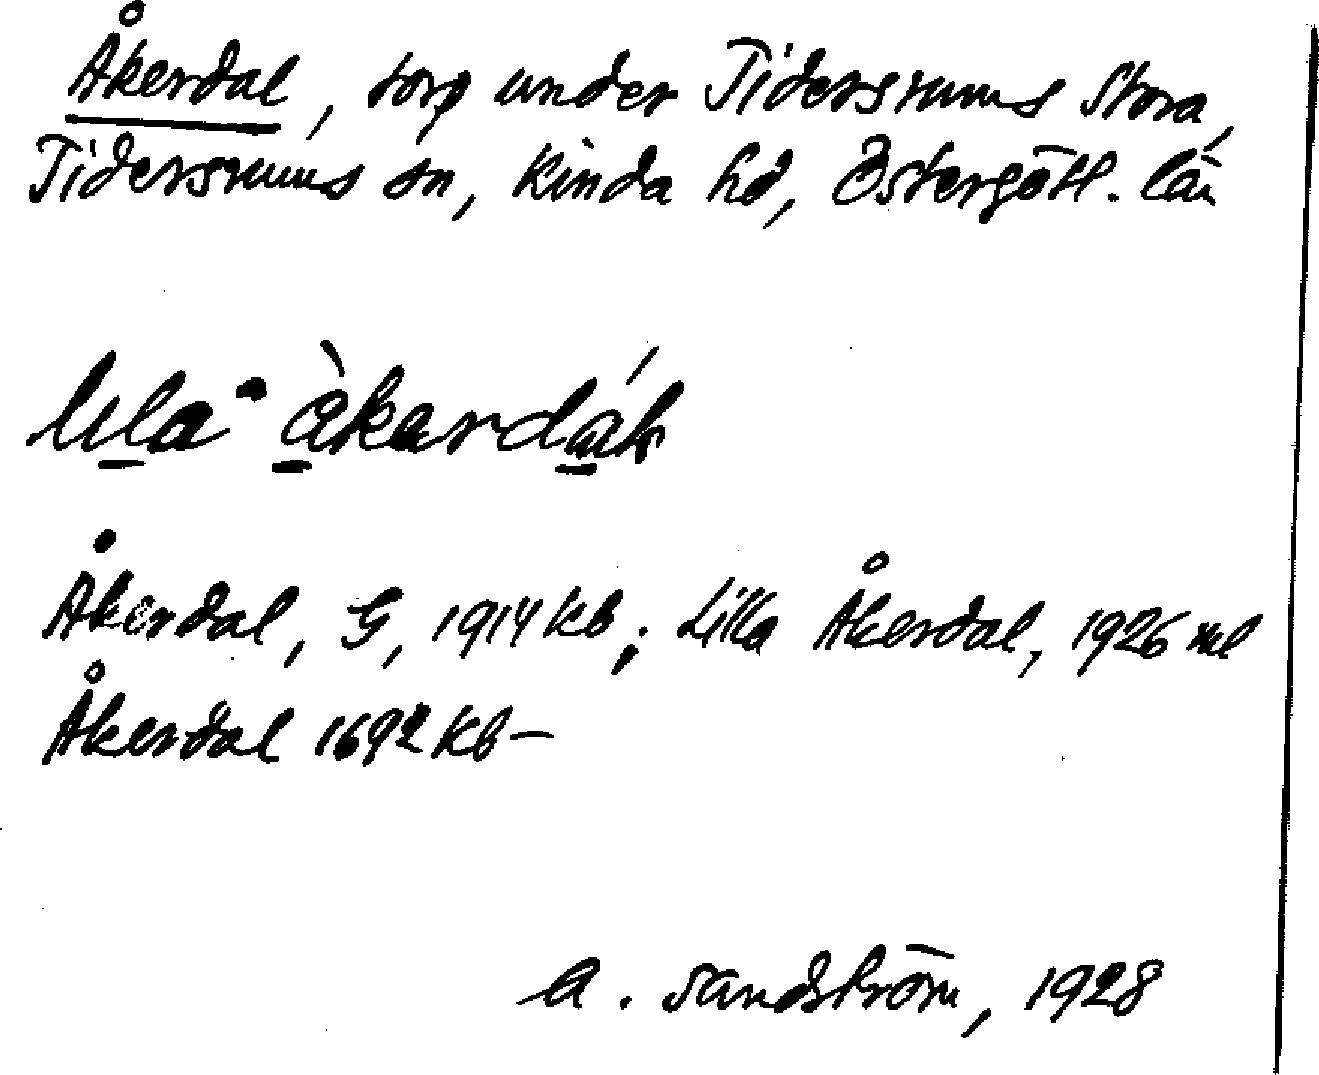 Åkerdal, torp under Tidersrums Stora,
Tidersrums sn, Kinda hd, Östergötl. län
Åkerdal, G, 1914 kb; Lilla Åkerdal, 1926 ml
Åkerdal 1692 kb –
A. Sandström, 1928